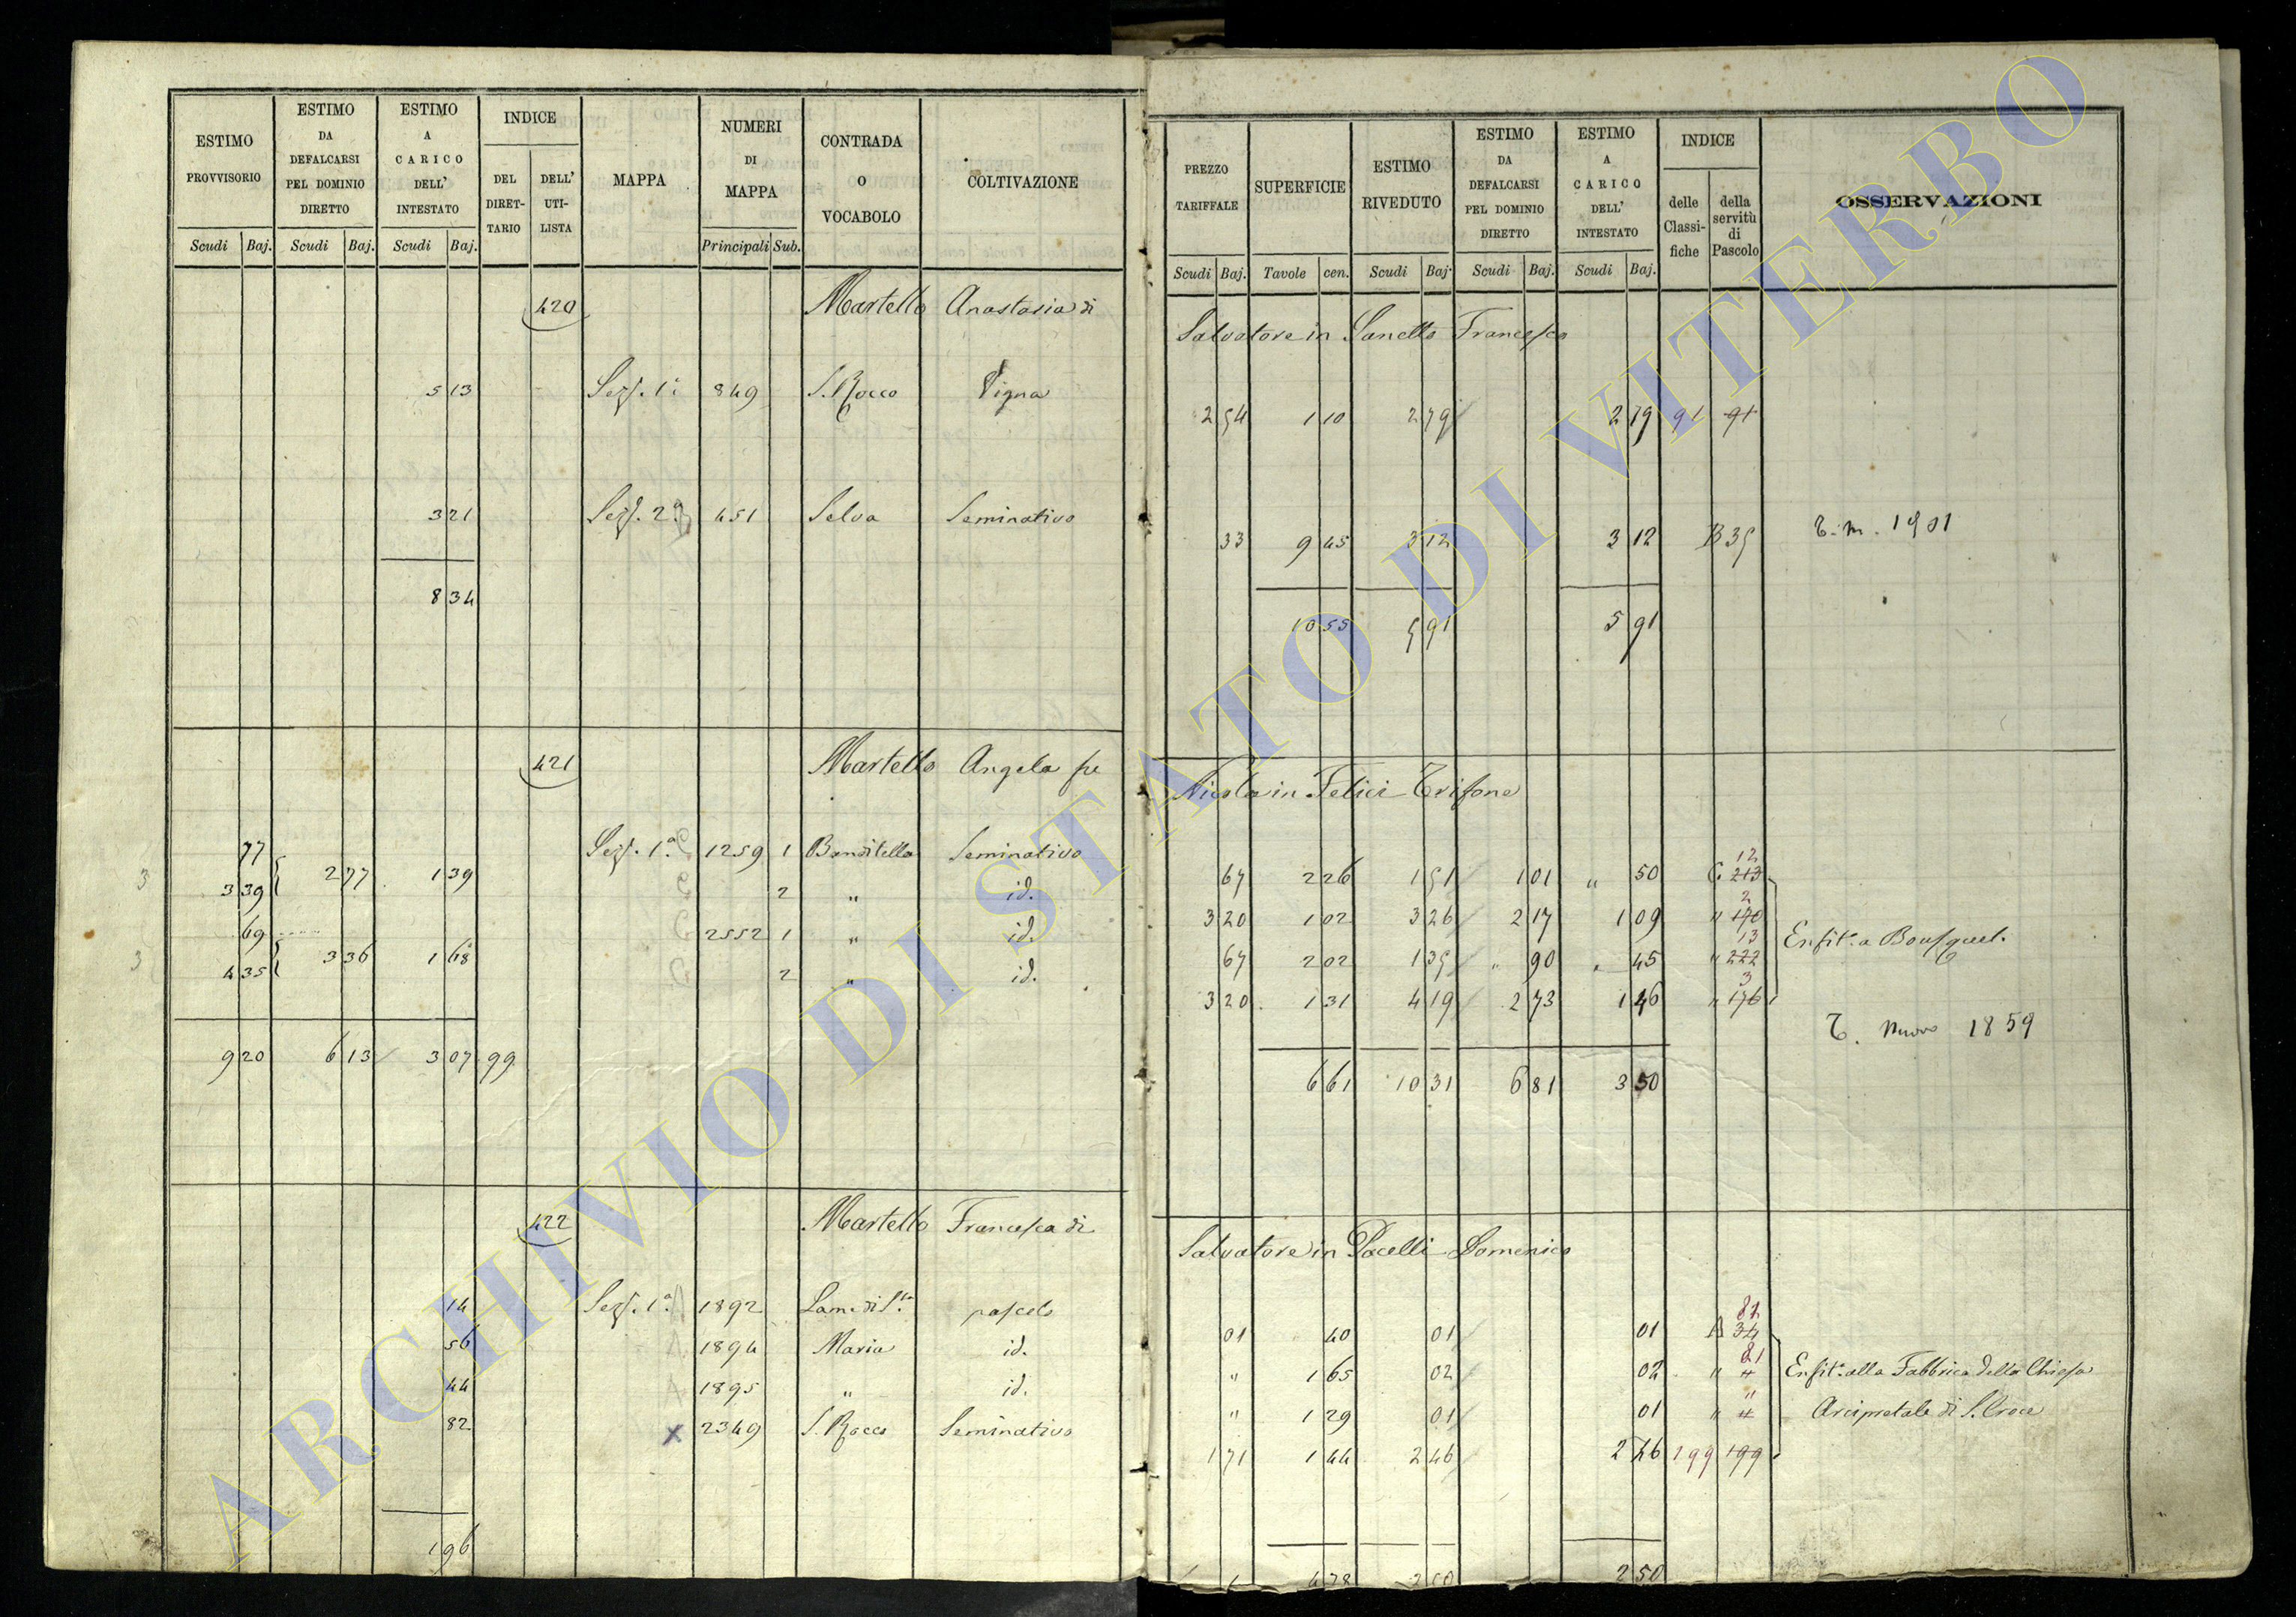 ESTIMO PROVVISORIO
Scudi Baj.
ESTIMO DA DEFALCARSI PEL DOMINIO DIRETTO
Scudi Baj.
ESTIMO A CARICO DELL' INTESTATO
Scudi Baj.
INDICE
DEL DIRET-TARIO
DELL' UTI-LISTA
MAPPA
NUMERI DI MAPPA
Principali Sub.
CONTRADA O VOCABOLO
COLTIVAZIONE
420 Martello Anastasia di
5 13 Sez. 1ª 849 S. Rocco Vigna
3 21 Sez. 2ª 451 Selva Seminativo
8 34
421 Martello Angela fu
77 Sez. 1ª 1259 1 Banditella Seminativo
3 2 77 1 39
3 39 2 " id.
69 2552 1 " id.
3 3 36 1 68
4 35 2 " id.
9 20 6 13 3 07 99
422 Martello Francesca di
14 Sez. 1ª 1892 Lame di S.ta pascolo
56 1894 Maria id.
44 1895 " id.
82 x 2349 S. Rocco Seminativo
1 96
PREZZO TARIFFALE
Scudi Baj.
SUPERFICIE
Tavole cen.
ESTIMO RIVEDUTO
Scudi Baj.
ESTIMO DA DEFALCARSI PEL DOMINIO DIRETTO
Scudi Baj.
ESTIMO A CARICO DELL' INTESTATO
Scudi Baj.
INDICE
delle Classi-fiche
della servitù di Pascolo
OSSERVAZIONI
Salvatore in Sanello Francesco
2 54 1 10 2 79 2 79 91 91
33 9 45 3 12 3 12 B 35 T. M. 1901
10 55 5 91 5 91
Nicola in Felici Trifone
12
67 2 26 1 51 1 01 " 50 C 213
2
3 20 1 02 3 26 2 17 1 09 " 170
13 Enfit. a Bousquet.
67 2 02 1 35 " 90 " 45 " 222
3
3 20 1 31 4 19 2 73 1 46 " 176
T. nuovo 1859
6 61 10 31 6 81 3 50
Salvatore in Pacelli Domenico
01 40 01 01 34
81
" 1 65 02 02 " " Enfit. alla Fabbrica della Chiesa
" 1 29 01 01 " " Arcipretale di S. Croce
1 71 1 44 2 46 2 46 199 199
4 78 2 50 2 50
ARCHIVIO DI STATO DI VITERBO